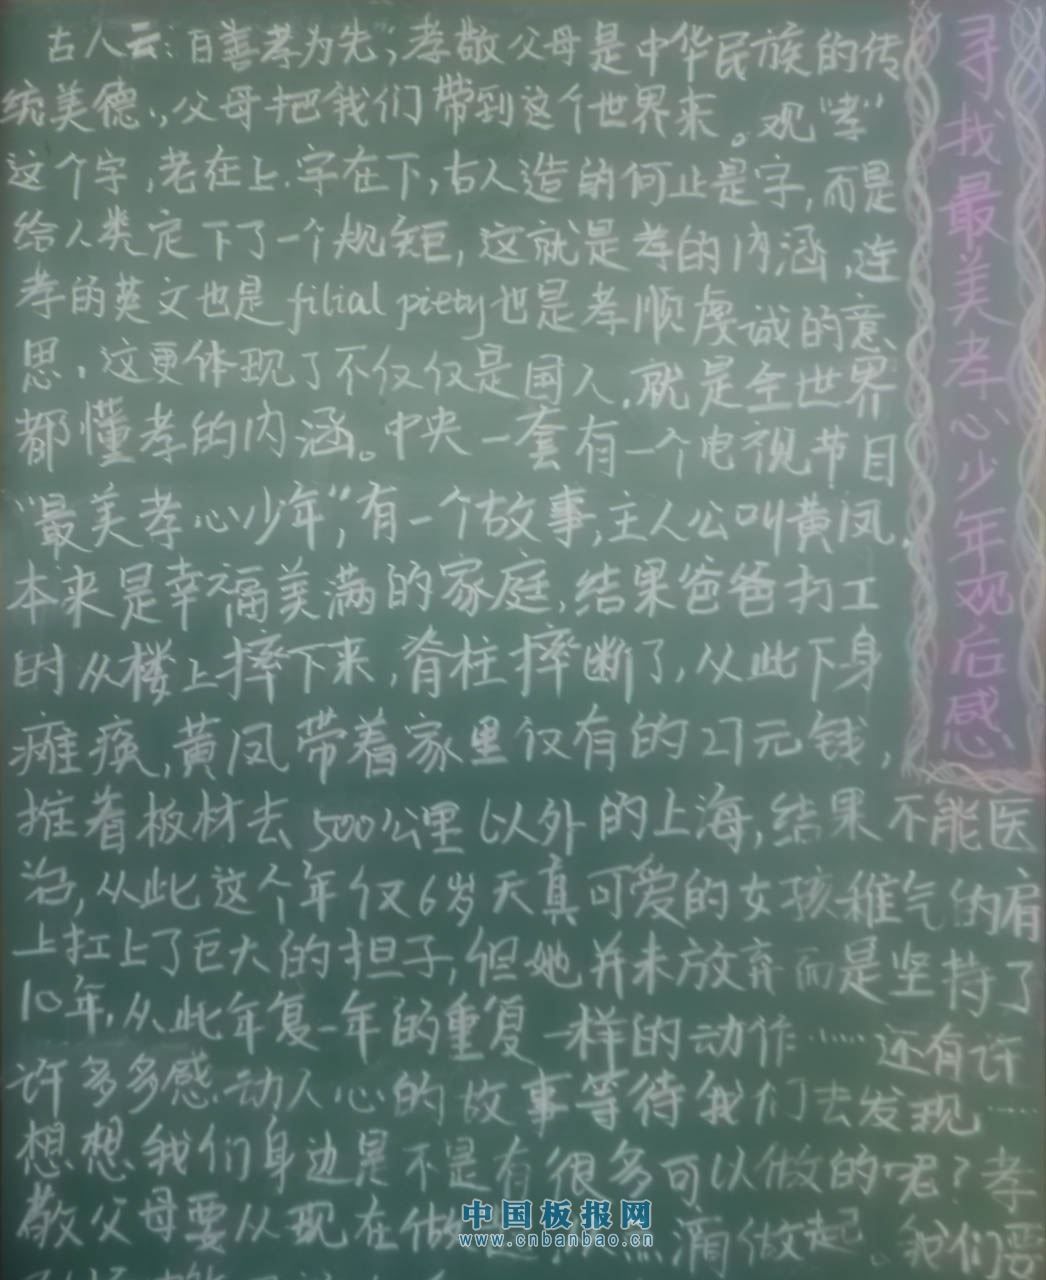 寻找最美孝心少年观后感
古人云:百善孝为先",孝敬父母是中华民族的传
统美德.,父母把我们带到这个世界来。观"孝"
这个字,老在上.字在下,古人造的何止是字,而是
给人类定下了一个规矩,这就是孝的内涵,连
孝的英文也是filial piety也是孝顺虔诚的意
思,这更体现了不仅仅是国人.就是全世界
都懂孝的内涵。中央一套有一个电视节目
"最美孝心少年",有一个故事,主人公叫黄凤,
本来是幸福美满的家庭,结果爸爸打工
时从楼上摔下来,脊柱摔断了,从此下身
瘫痪,黄凤带着家里仅有的27元钱,
推着板材去500公里以外的上海,结果不能医
治,从此这个年仅6岁天真可爱的女孩稚气的肩
上扛上了巨大的担子,但她并未放弃而是坚持了
10年,从此年复一年的重复一样的动作……还有许
许多多感动人心的故事等待我们去发现……
想想我们身边是不是有很多可以做的呢?孝
敬父母要从现在做 滴做起。我们要
中国板报网
www.cnbanbao.cn